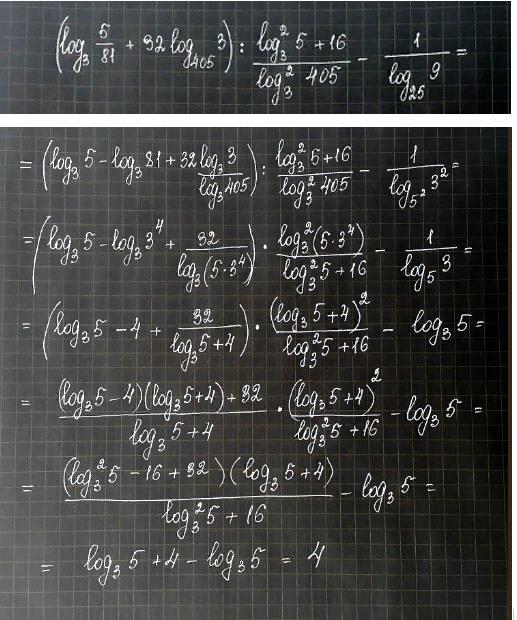 (log₃ 5/81 + 32 log₄₀₅ 3) : (log₃² 5 + 16)/(log₃² 405) − 1/(log₂₅ 9) =
= (log₃ 5 − log₃ 81 + 32 (log₃ 3)/(log₃ 405)) : (log₃² 5 + 16)/(log₃² 405) − 1/(log₅² 3²) =
= (log₃ 5 − log₃ 3⁴ + 32/(log₃ (5·3⁴))) · (log₃² (5·3⁴))/(log₃² 5 + 16) − 1/(log₅ 3) =
= (log₃ 5 − 4 + 32/(log₃ 5 + 4)) · (log₃ 5 + 4)²/(log₃² 5 + 16) − log₃ 5 =
= ((log₃ 5 − 4)(log₃ 5 + 4) + 32)/(log₃ 5 + 4) · (log₃ 5 + 4)²/(log₃² 5 + 16) − log₃ 5 =
= ((log₃² 5 − 16 + 32)(log₃ 5 + 4))/(log₃² 5 + 16) − log₃ 5 =
= log₃ 5 + 4 − log₃ 5 = 4